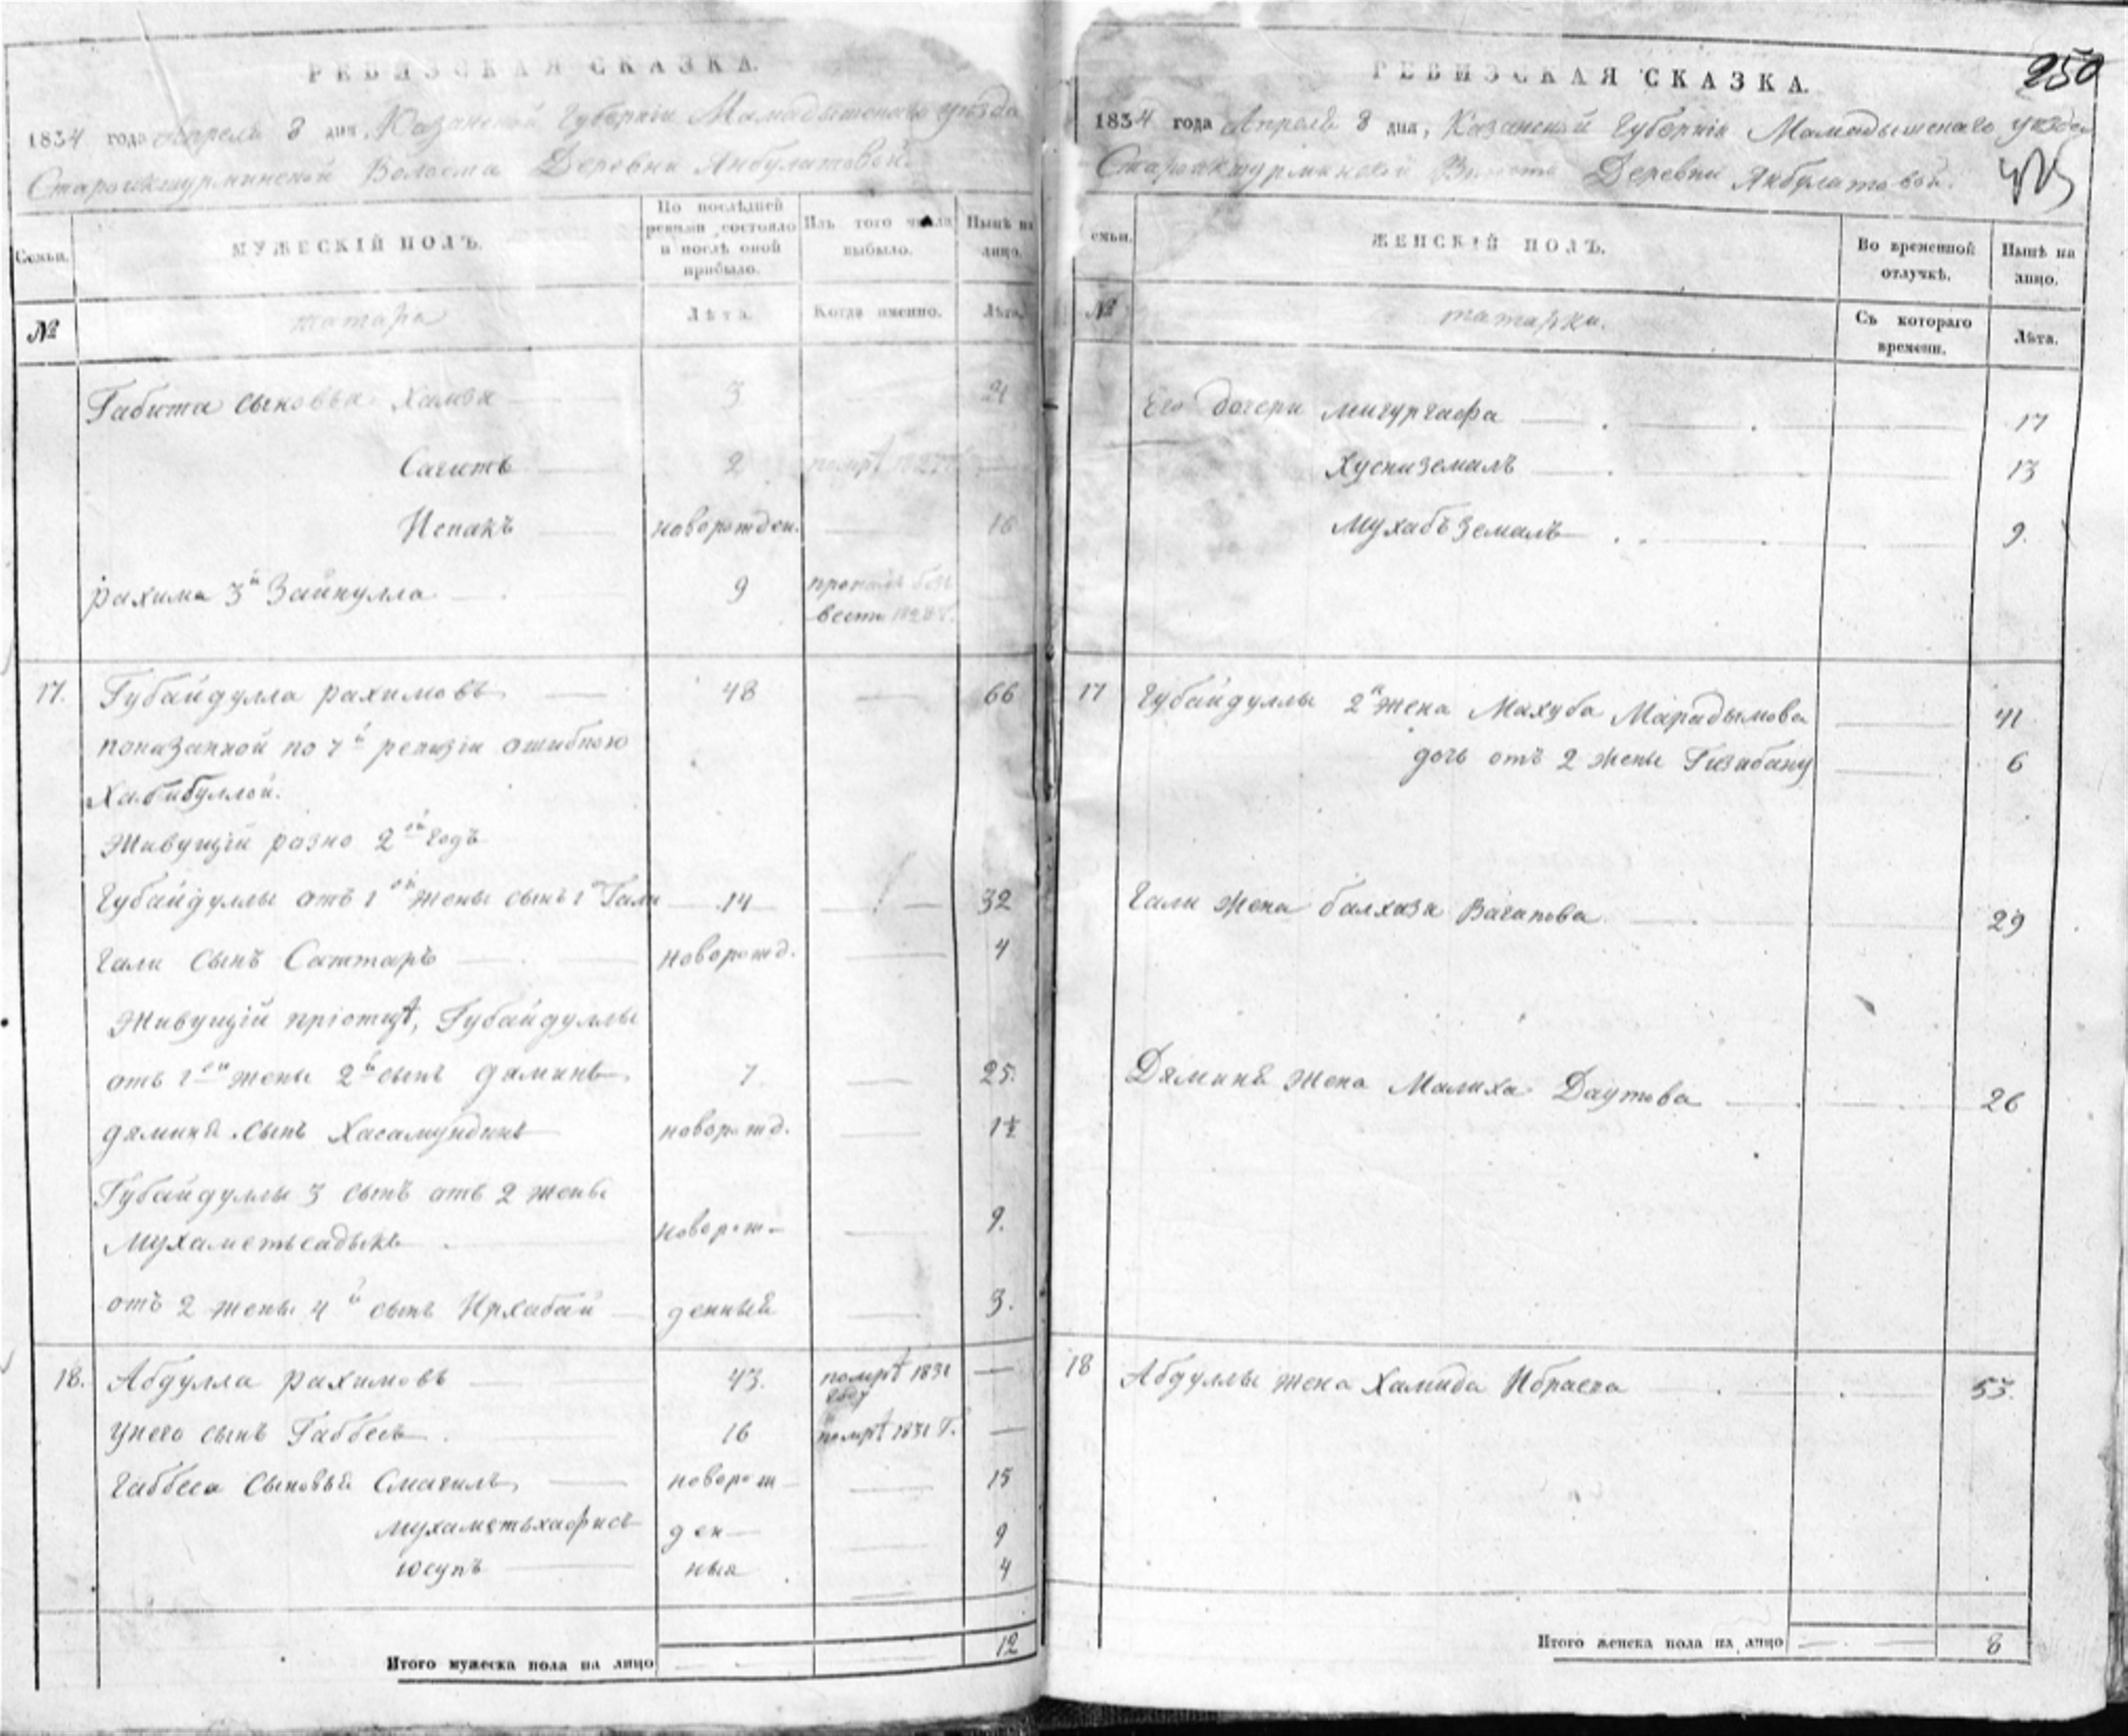 РЕВИЗСКАЯ СКАЗКА.
1834 года Апреля 8 дня, Казанской Губернiи Мамадышскаго уѣзда
Староикшурминской Волости Деревни Янбулатовой.
Семьи.
МУЖЕСКІЙ ПОЛЪ.
По послѣдней ревизіи состояло и послѣ оной прибыло.
Изъ того числа выбыло.
Нынѣ на лицо.
№
татара
Лѣта.
Когда именно.
Лѣта.
Габита сыновья Хамза 3 21
Сагитъ 2 помрѣ
Испакъ новорожден. 16
рахима 3й Зайнулла 9 пропалъ безъ
вести
17. Губайдулла рахимовъ 48 66
показанной по 7й ревизіи ошибкою
Хабибуллой.
Живущій розно 2ой годъ
Губайдуллы отъ 1ой жены сынъ 1й Гали 14 32
Гали сынъ Саттаръ новорожд. 4
Живущій при отцѣ, Губайдуллы
отъ 1ой жены 2й сынъ дяминъ 7 25.
дямина сынъ Хасамундинъ новорожд. 1½
Губайдуллы 3 сынъ отъ 2 жены
Мухаметьсадыкъ новорож- 9.
отъ 2 жены 4й сынъ Ирхабай денный 3.
18. Абдулла рахимовъ 43. помрѣ 1831
году
у него сынъ Габбесъ 16 помрѣ 1831 г.
Габбеса сыновья Смагилъ новорож- 15
Мухаметьхафисъ ден- 9
Юсупъ ныя 4
Итого мужеска пола на лицо 12
250
РЕВИЗСКАЯ СКАЗКА.
1834 года Апреля 8 дня, Казанской Губернiи Мамадышскаго уѣзда
Староикшурминской Волости Деревни Янбулатовой.
семьи.
ЖЕНСКІЙ ПОЛЪ.
Во временной отлучкѣ.
Нынѣ на лицо.
№
татарки.
Съ котораго времени.
Лѣта.
Его дочери Мигургафа 17
Хуснизямалъ 13
Мухабъземалъ 9.
17 Губайдуллы 2я жена Махуба Марадымова 41
дочь отъ 2 жены Гизибану 6
Гали жена балхиза Вагапова 29
Дямина жена Малиха Даутова 26
18 Абдуллы жена Хамида Ибраева 53.
Итого женска пола на лицо 8